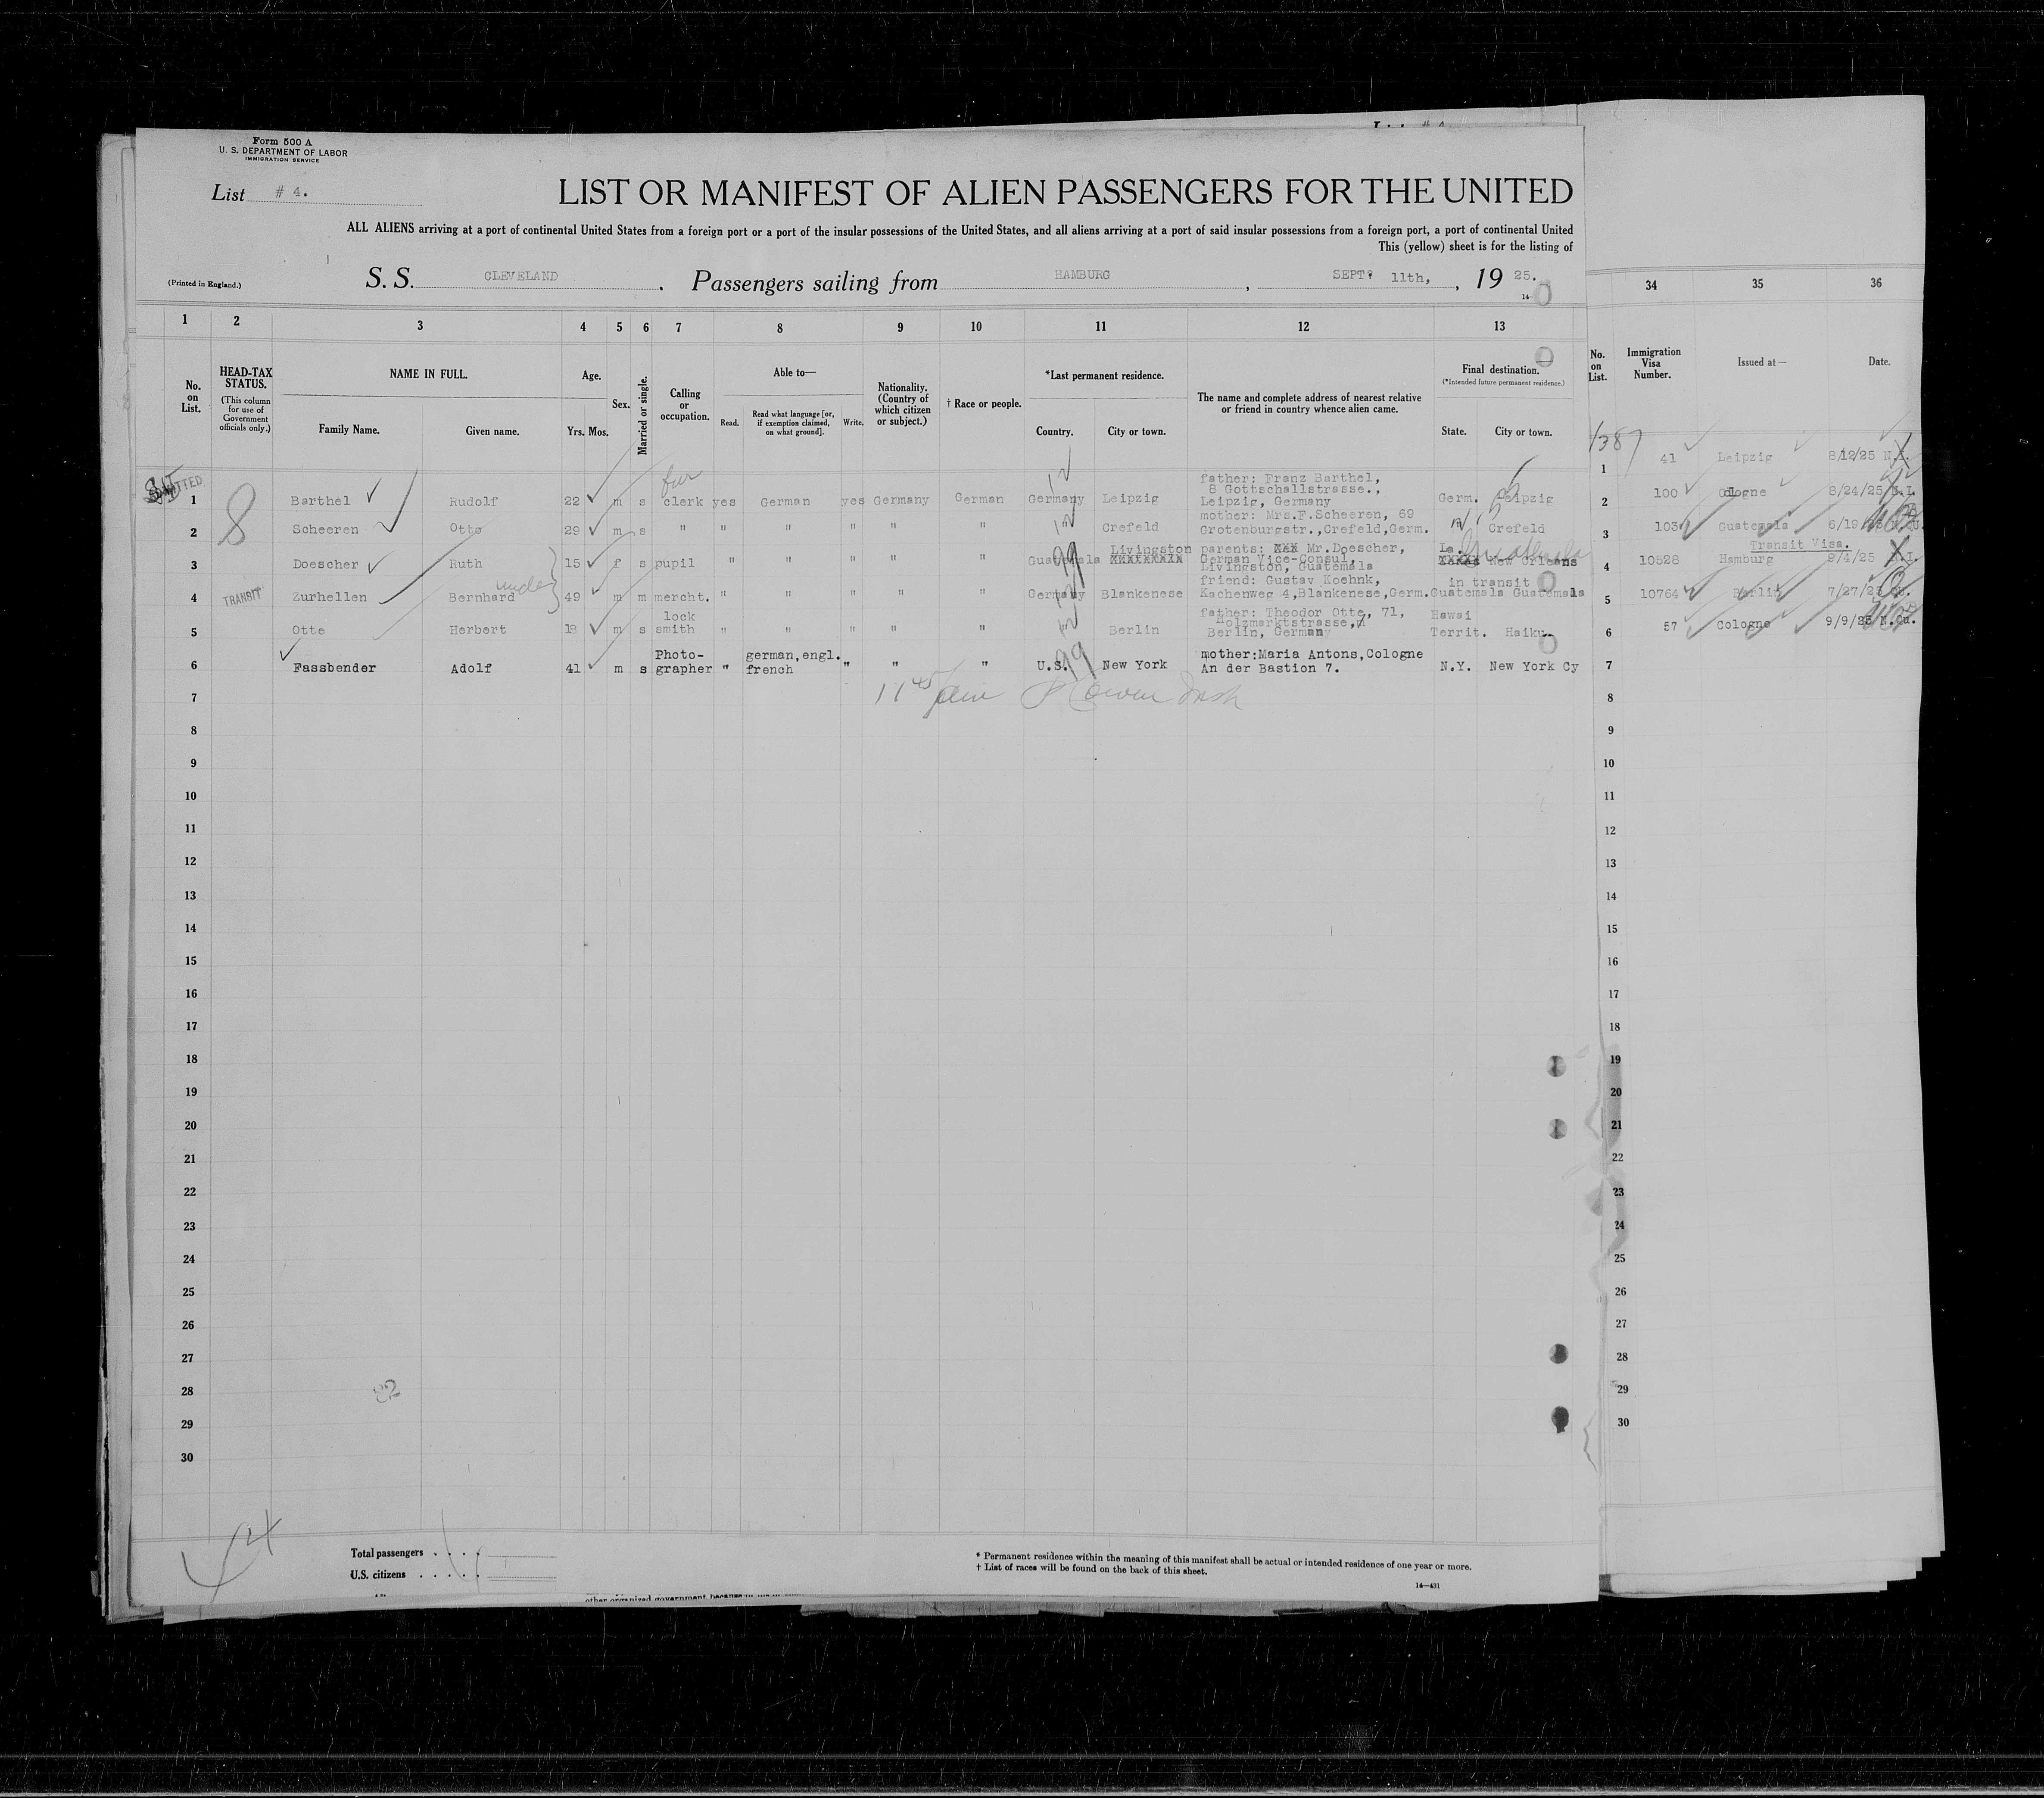 Form 500 A
U. S. DEPARTMENT OF LABOR
IMMIGRATION SERVICE
List # 4.
LIST OR MANIFEST OF ALIEN PASSENGERS FOR THE UNITED
ALL ALIENS arriving at a port of continental United States from a foreign port or a port of the insular possessions of the United States, and all aliens arriving at a port of said insular possessions from a foreign port, a port of continental United
This (yellow) sheet is for the listing of
(Printed in England.)
S. S. CLEVELAND . Passengers sailing from HAMBURG , SEPT. 11th, , 19 25.
1 2 3 4 5 6 7 8 9 10 11 12 13
34 35 36
No. on List.
HEAD-TAX STATUS.
(This column for use of Government officials only.)
NAME IN FULL.
Family Name.
Given name.
Age.
Yrs. Mos.
Sex.
Married or single.
Calling or occupation.
Able to—
Read.
Read what language [or, if exemption claimed, on what ground].
Write.
Nationality. (Country of which citizen or subject.)
† Race or people.
*Last permanent residence.
Country.
City or town.
The name and complete address of nearest relative or friend in country whence alien came.
Final destination.
(*Intended future permanent residence.)
State.
City or town.
No. on List.
Immigration Visa Number.
Issued at—
Date.
fur
father: Franz Barthel,
8 Gottschallstrasse.,
1 Barthel Rudolf 22 m s clerk yes German yes Germany German Germany Leipzig Leipzig, Germany Germ. Leipzig
mother: Mrs.F.Scheeren, 69
2 Scheeren Otto 29 m s " " " " " " Crefeld Grotenburgstr.,Crefeld,Germ. Crefeld
Livingston parents: XXX Mr.Doescher, La. Guatemala
3 Doescher Ruth 15 f s pupil " " " " " Guatemala XXXXXXXXX German Vice-Consul, New Orleans
Livingston, Guatemala
under
friend: Gustav Koehnk, in transit
4 TRANSIT Zurhellen Bernhard 49 m m mercht. " " " " " Germany Blankenese Kachenweg 4,Blankenese,Germ. Guatemala Guatemala
lock father: Theodor Otto, 71, Hawai
Holzmarktstrasse,
5 Otto Herbert 18 m s smith " " " " " Berlin Berlin, Germany Territ. Haiku.
Photo- german,engl. mother:Maria Antons,Cologne
6 Fassbender Adolf 41 m s grapher " french " " " U.S. New York An der Bastion 7. N.Y. New York Cy
7
8
9
10
11
12
13
14
15
16
17
18
19
20
21
22
23
24
25
26
27
28
29
30
82
1 41 Leipzig 8/12/25 N.I.
2 100 Cologne 8/24/25 N.I.
3 103 Guatemala 6/19
Transit Visa.
4 10528 Hamburg 9/4/25 N.I.
5 10764 Berlin 7/27/25
6 57 Cologne 9/9/25 N.Qu.
7
8
9
10
11
12
13
14
15
16
17
18
19
20
21
22
23
24
25
26
27
28
29
30
Total passengers . . . .
U.S. citizens . . . . .
* Permanent residence within the meaning of this manifest shall be actual or intended residence of one year or more.
† List of races will be found on the back of this sheet.
14—431